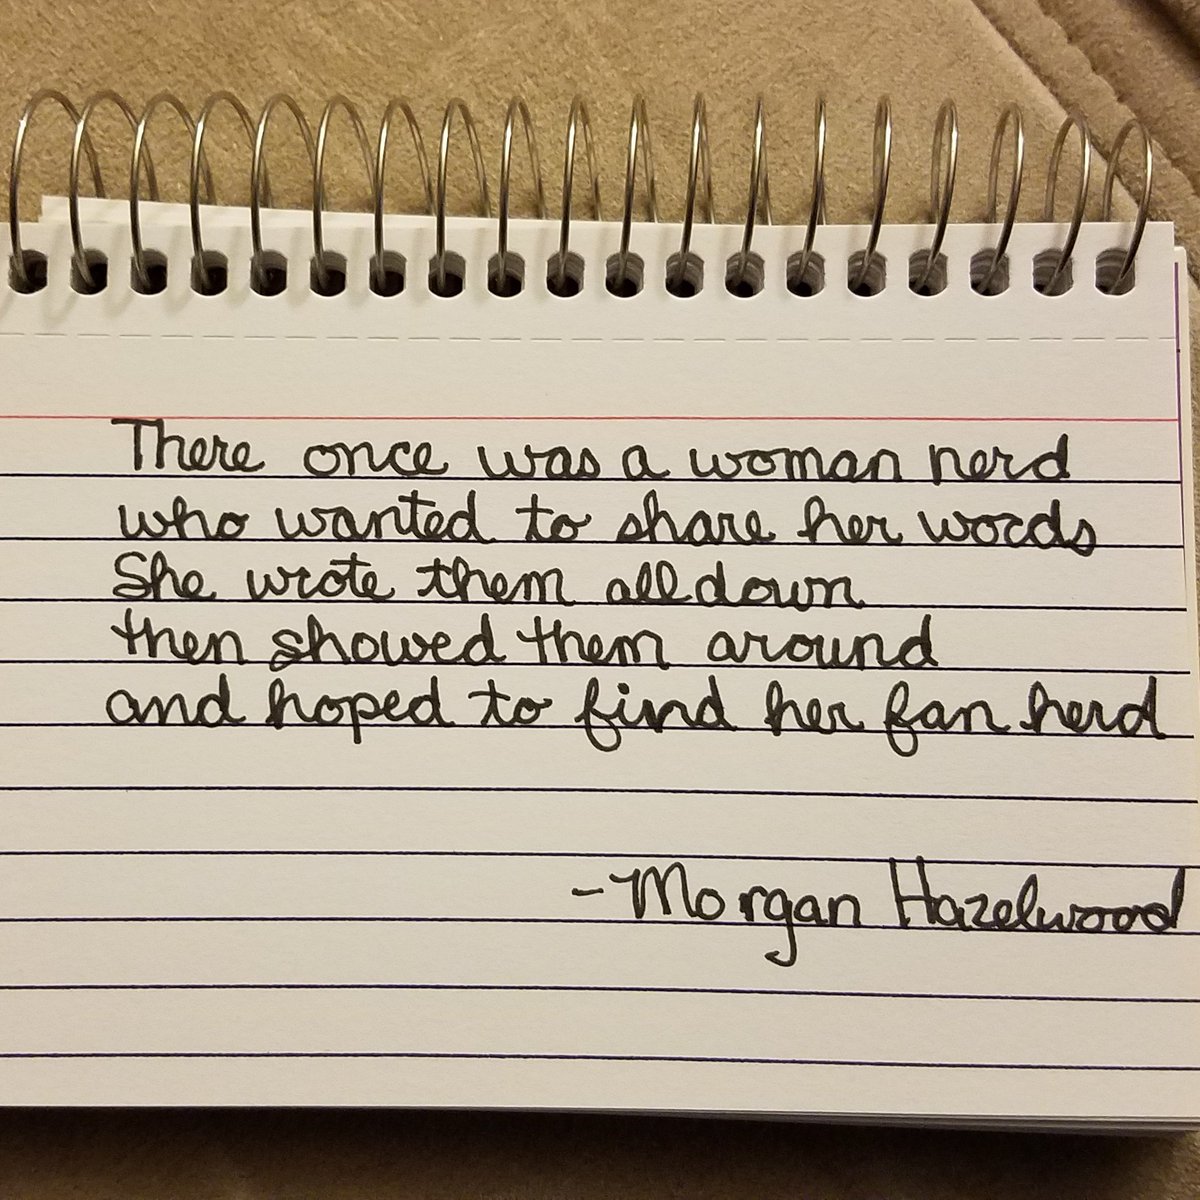 There once was a woman nerd
who wanted to share her words
She wrote them all down
then showed them around
and hoped to find her fan herd
- Morgan Hazelwood